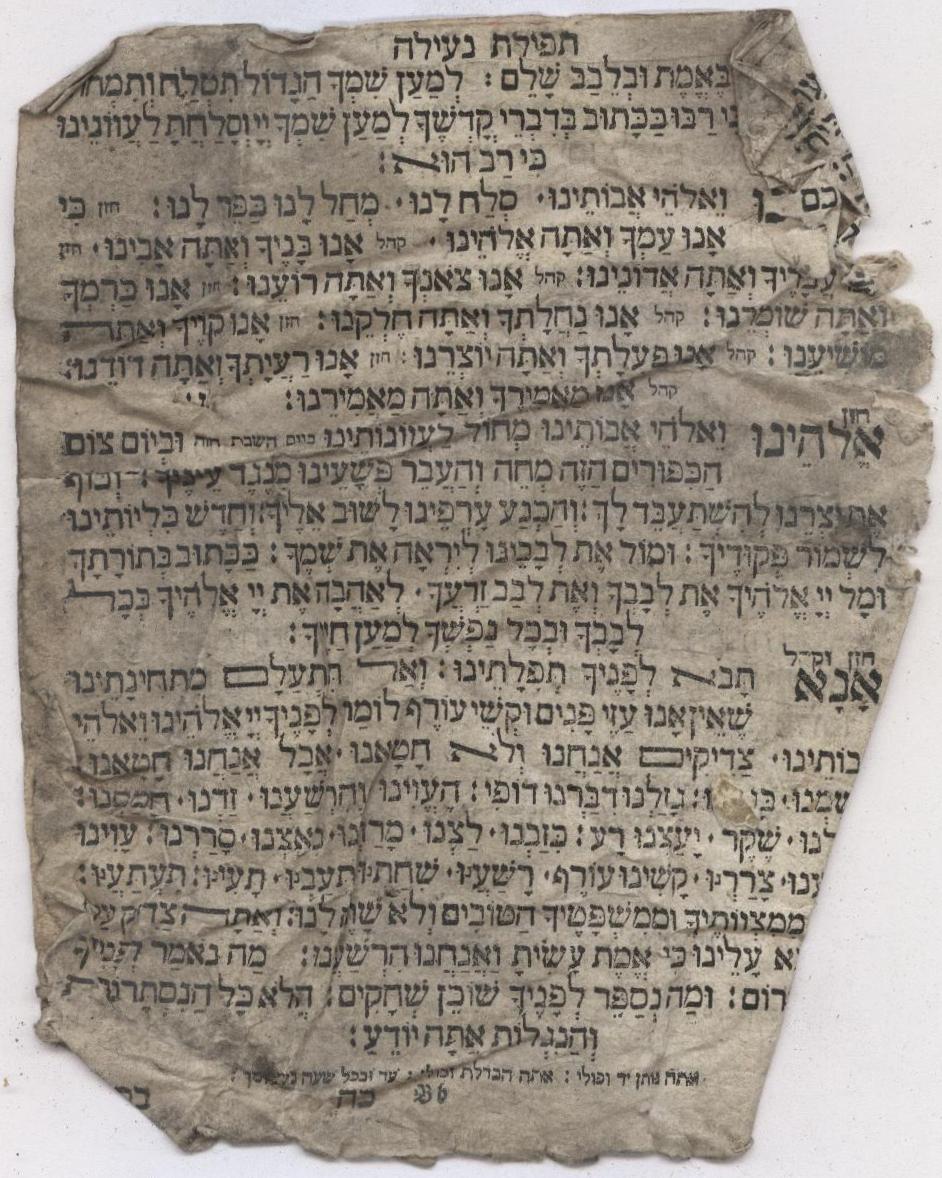 תפילת נעילה
בֶּאֱמֶת וּבְלֵבָב שָׁלֵם : לְמַעַן שִׁמְךָ הַגָּדוֹל תִּסְלַח וְתִמְחוֹל
כִּי רַבּוּ כַּכָּתוּב בְּדִבְרֵי קָדְשֶׁךָ לְמַעַן שִׁמְךָ יְיָ וְסָלַחְתָּ לַעֲווֹנֵינוּ
כִּי רַב הוּא :
וֵאלֹהֵי אֲבוֹתֵינוּ · סְלַח לָנוּ · מְחַל לָנוּ כַּפֶּר לָנוּ : חזן כִּי
אָנוּ עַמֶּךָ וְאַתָּה אֱלֹהֵינוּ · קהל אָנוּ בָנֶיךָ וְאַתָּה אָבִינוּ · חזן
עֲבָדֶיךָ וְאַתָּה אֲדוֹנֵינוּ : קהל אָנוּ צֹאנֶךָ וְאַתָּה רוֹעֵנוּ : חזן אָנוּ כַרְמֶךָ
וְאַתָּה שׁוֹמְרֵנוּ : קהל אָנוּ נַחֲלָתֶךָ וְאַתָּה חֶלְקֵנוּ : חזן אָנוּ קוֶֹיךָ וְאַתָּה
מוֹשִׁיעֵנוּ : קהל אָנוּ פְעֻלָּתֶךָ וְאַתָּה יוֹצְרֵנוּ : חזן אָנוּ רַעְיָתֶךָ וְאַתָּה דוֹדֵנוּ :
קהל אָנוּ מַאֲמִירֶךָ וְאַתָּה מַאֲמִירֵנוּ :
חזן
אֱלֹהֵינוּ וֵאלֹהֵי אֲבוֹתֵינוּ מְחוֹל לַעֲוֹונוֹתֵינוּ ביום השבת הזה וּבְיוֹם צוֹם
הַכִּפּוּרִים הַזֶּה מְחֵה וְהַעֲבֵר פְּשָׁעֵינוּ מִנֶּגֶד עֵינֶיךָ : וְכוֹף
אֶת יִצְרֵנוּ לְהִשְׁתַּעְבֵּד לָךְ : וְהַכְנַע עָרְפֵּינוּ לָשׁוּב אֵלֶיךָ : וְחַדֵּשׁ כִּלְיוֹתֵינוּ
לִשְׁמוֹר פִּקּוּדֶיךָ : וּמוֹל אֶת לְבָבֵינוּ לְיִרְאָה אֶת שְׁמֶךָ : כַּכָּתוּב בְּתוֹרָתֶךָ
וּמָל יְיָ אֱלֹהֶיךָ אֶת לְבָבְךָ וְאֶת לְבַב זַרְעֶךָ · לְאַהֲבָה אֶת יְיָ אֱלֹהֶיךָ בְּכָל
לְבָבְךָ וּבְכָל נַפְשְׁךָ לְמַעַן חַיֶּיךָ :
חזן וקהל
אָנָא תָּבֹא לְפָנֶיךָ תְּפִלָּתֵינוּ : וְאַל תִּתְעַלַּם מִתְּחִינָתֵינוּ
שֶׁאֵין אָנוּ עַזֵּי פָנִים וּקְשֵׁי עוֹרֶף לוֹמַר לְפָנֶיךָ יְיָ אֱלֹהֵינוּ וֵאלֹהֵי
בוֹתֵינוּ · צַדִּיקִים אֲנַחְנוּ וְלֹא חָטָאנוּ · אֲבָל אֲנַחְנוּ חָטָאנוּ :
שַׁמְנוּ · גָּזַלְנוּ דִּבַּרְנוּ דוֹפִי : הֶעֱוִינוּ וְהִרְשַׁעְנוּ · זַדְנוּ · חָמַסְנוּ :
לְנוּ · שֶׁקֶר · יָעַצְנוּ רָע : כִּזַּבְנוּ · לַצְנוּ · מָרַדְנוּ · נִאַצְנוּ · סָרַרְנוּ : עָוִינוּ
עְנוּ · צָרַרְנוּ · קִשִּׁינוּ עוֹרֶף · רָשַׁעְנוּ · שִׁחַתְנוּ · תִּעַבְנוּ · תָּעִינוּ : תִּעְתָּעְנוּ :
מִמִּצְוֹתֶיךָ וּמִמִּשְׁפָּטֶיךָ הַטּוֹבִים וְלֹא שָׁוָה לָנוּ : וְאַתָּה צַדִּיק עַל
א עָלֵינוּ כִּי אֱמֶת עָשִׂיתָ וַאֲנַחְנוּ הִרְשָׁעְנוּ : מַה נֹּאמַר לְפָנֶיךָ
רוֹם : וּמַה נְּסַפֵּר לְפָנֶיךָ שׁוֹכֵן שְׁחָקִים : הֲלֹא כָּל הַנִּסְתָּרוֹת
וְהַנִּגְלוֹת אַתָּה יוֹדֵעַ :
אתה נותן יד וכולי : אתה הבדלת וכולי : עד ובכל שעה
כה